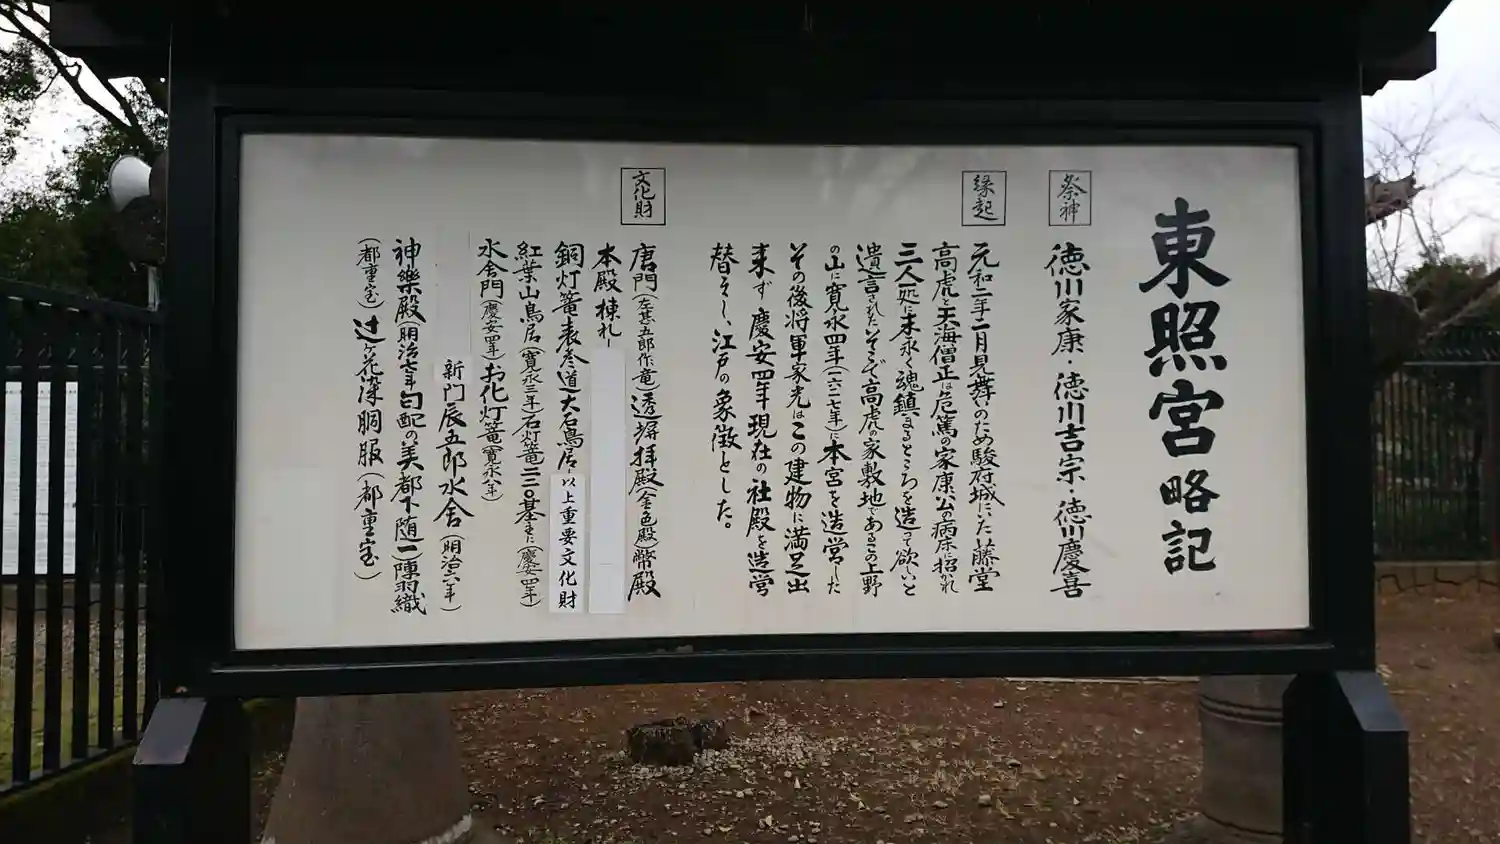 東照宮略記
祭神
徳川家康・徳川吉宗・徳川慶喜
縁起
元和二年二月見舞いのため駿府城にいた藤堂
高虎と天海僧正は危篤の家康公の病床に招かれ
三人一処に末永く魂鎮まるところを造って欲しいと
遺言された。そこで高虎の家敷地であるこの上野
の山に寛永四年(一六二七年)に本宮を造営した
その後将軍家光はこの建物に満足出
来ず慶安四年現在の社殿を造営
替えし、江戸の象徴とした。
文化財
唐門(左甚五郎作竜)透塀拝殿(金色殿)幣殿
本殿棟札一
銅灯篭表参道大石鳥居 以上重要文化財
紅葉山鳥居(寛永三年)石灯篭二二〇基また(慶安四年)
水舎門(慶安四年)お花灯篭(寛永八年)
新門辰五郎水舎(明治六年)
神楽殿(明治七年勾配の美都下随一)陣羽織
(都重宝)辻ヶ花染胴服(都重宝)